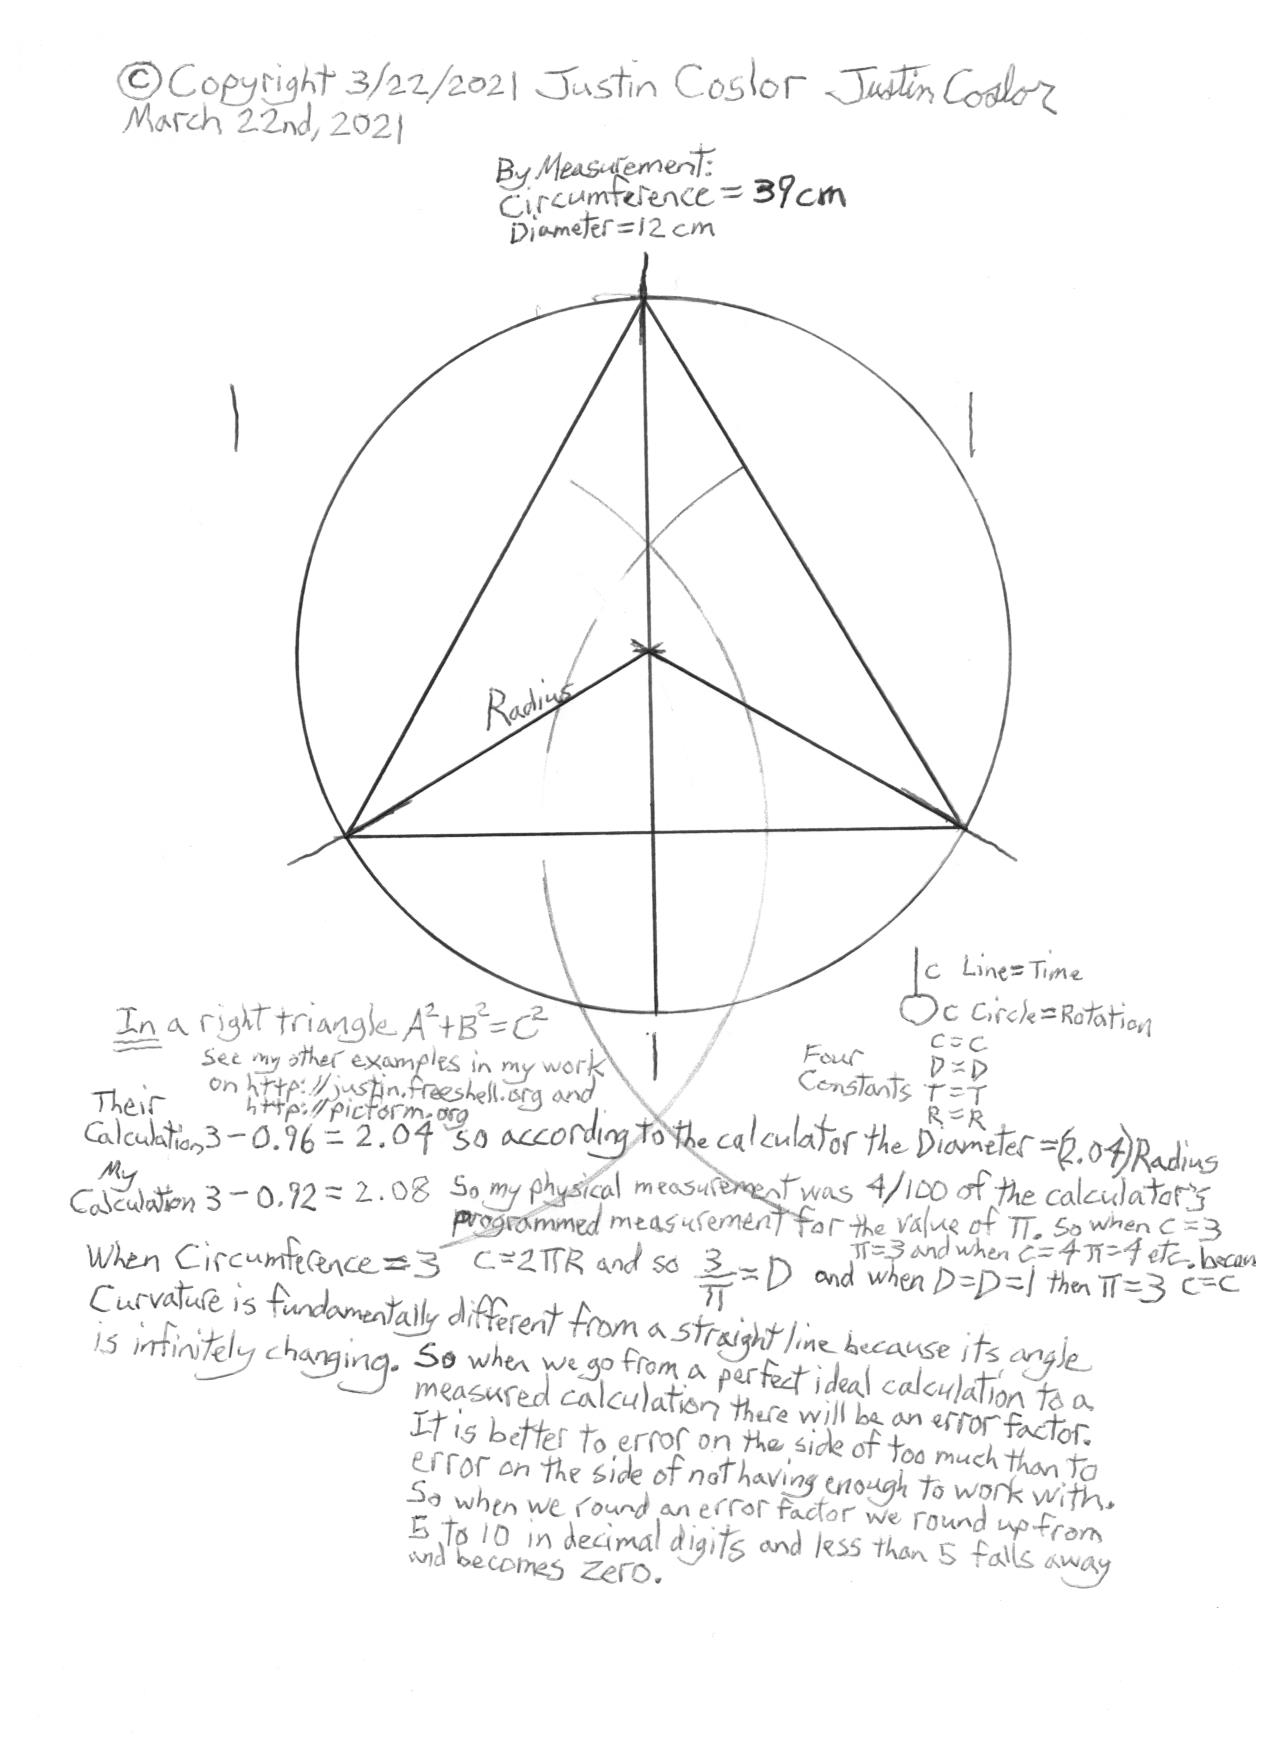 ©Copyright 3/22/2021 Justin Coslor Justin Coslor
March 22nd, 2021
By Measurement:
Circumference = 39cm
Diameter = 12 cm
Radius
C Line = Time
C Circle = Rotation
Four Constants
C = C
D = D
T = T
R = R
In a right triangle A²+B²=C²
See my other examples in my work
on http://justin.freeshell.org and
http://picform.org
Their Calculation, 3 - 0.96 = 2.04 so according to the calculator the Diameter = (2.04)Radius
My Calculation 3 - 0.92 = 2.08 So, my physical measurement was 4/100 of the calculator's
programmed measurement for the value of π. So when C = 3
π = 3 and when C = 4 π = 4 etc. becau
When Circumference = 3 C = 2πR and so 3/π = D and when D = D = 1 then π = 3 C = C
Curvature is fundamentally different from a straight line because its angle
is infinitely changing. So when we go from a perfect ideal calculation to a
measured calculation there will be an error factor.
It is better to error on the side of too much than to
error on the side of not having enough to work with.
So when we round an error factor we round up from
5 to 10 in decimal digits and less than 5 falls away
and becomes zero.